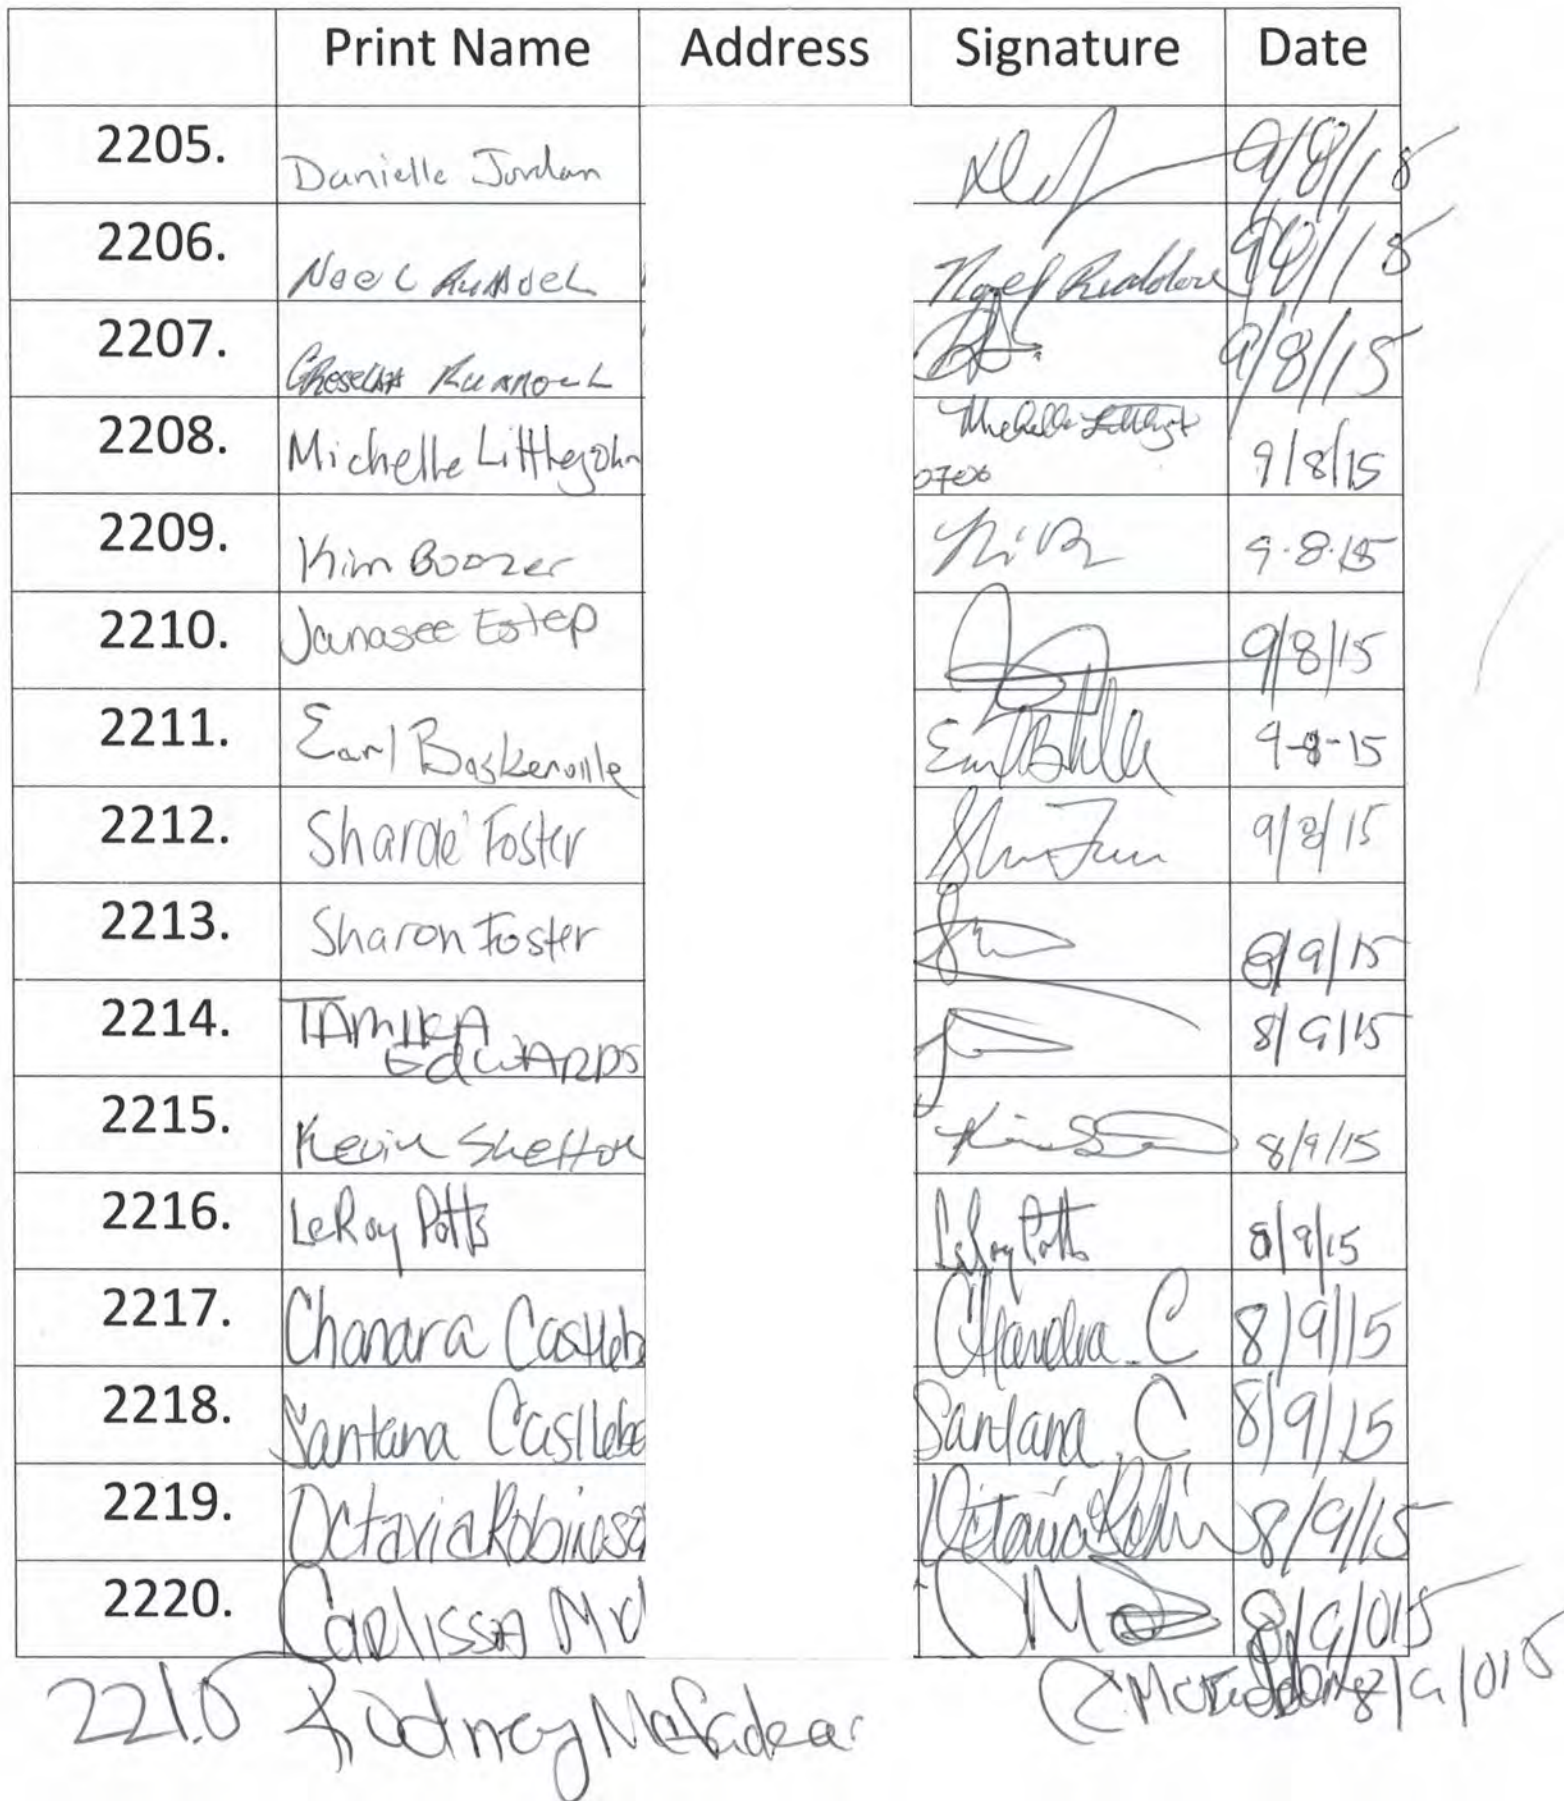 Print Name Address Signature Date
2205. Danielle Jordan 9/8/15
2206. Noel 9/8/15
2207. 9/8/15
2208. Michelle Littlejohn Michelle Littlejohn 9/8/15
07006
2209. Kim Boozer 9.8.15
2210. Janasee Estep 9/8/15
2211. Earl Baskerville 9-8-15
2212. Sharde' Foster 9/8/15
2213. Sharon Foster 8/9/15
2214. TAMIKA
EdWARDS 8/9/15
2215. Kevin Shelton 8/9/15
2216. LeRoy Potts LeRoy Potts 8/9/15
2217. Chanara Castleb C 8/9/15
2218. Santana Castlebe Santana C 8/9/15
2219. Octavia Robinso Octavia Robin 8/9/15
2220. Carlissa Mc 8/9/015
221.0 Rodney 8/9/015